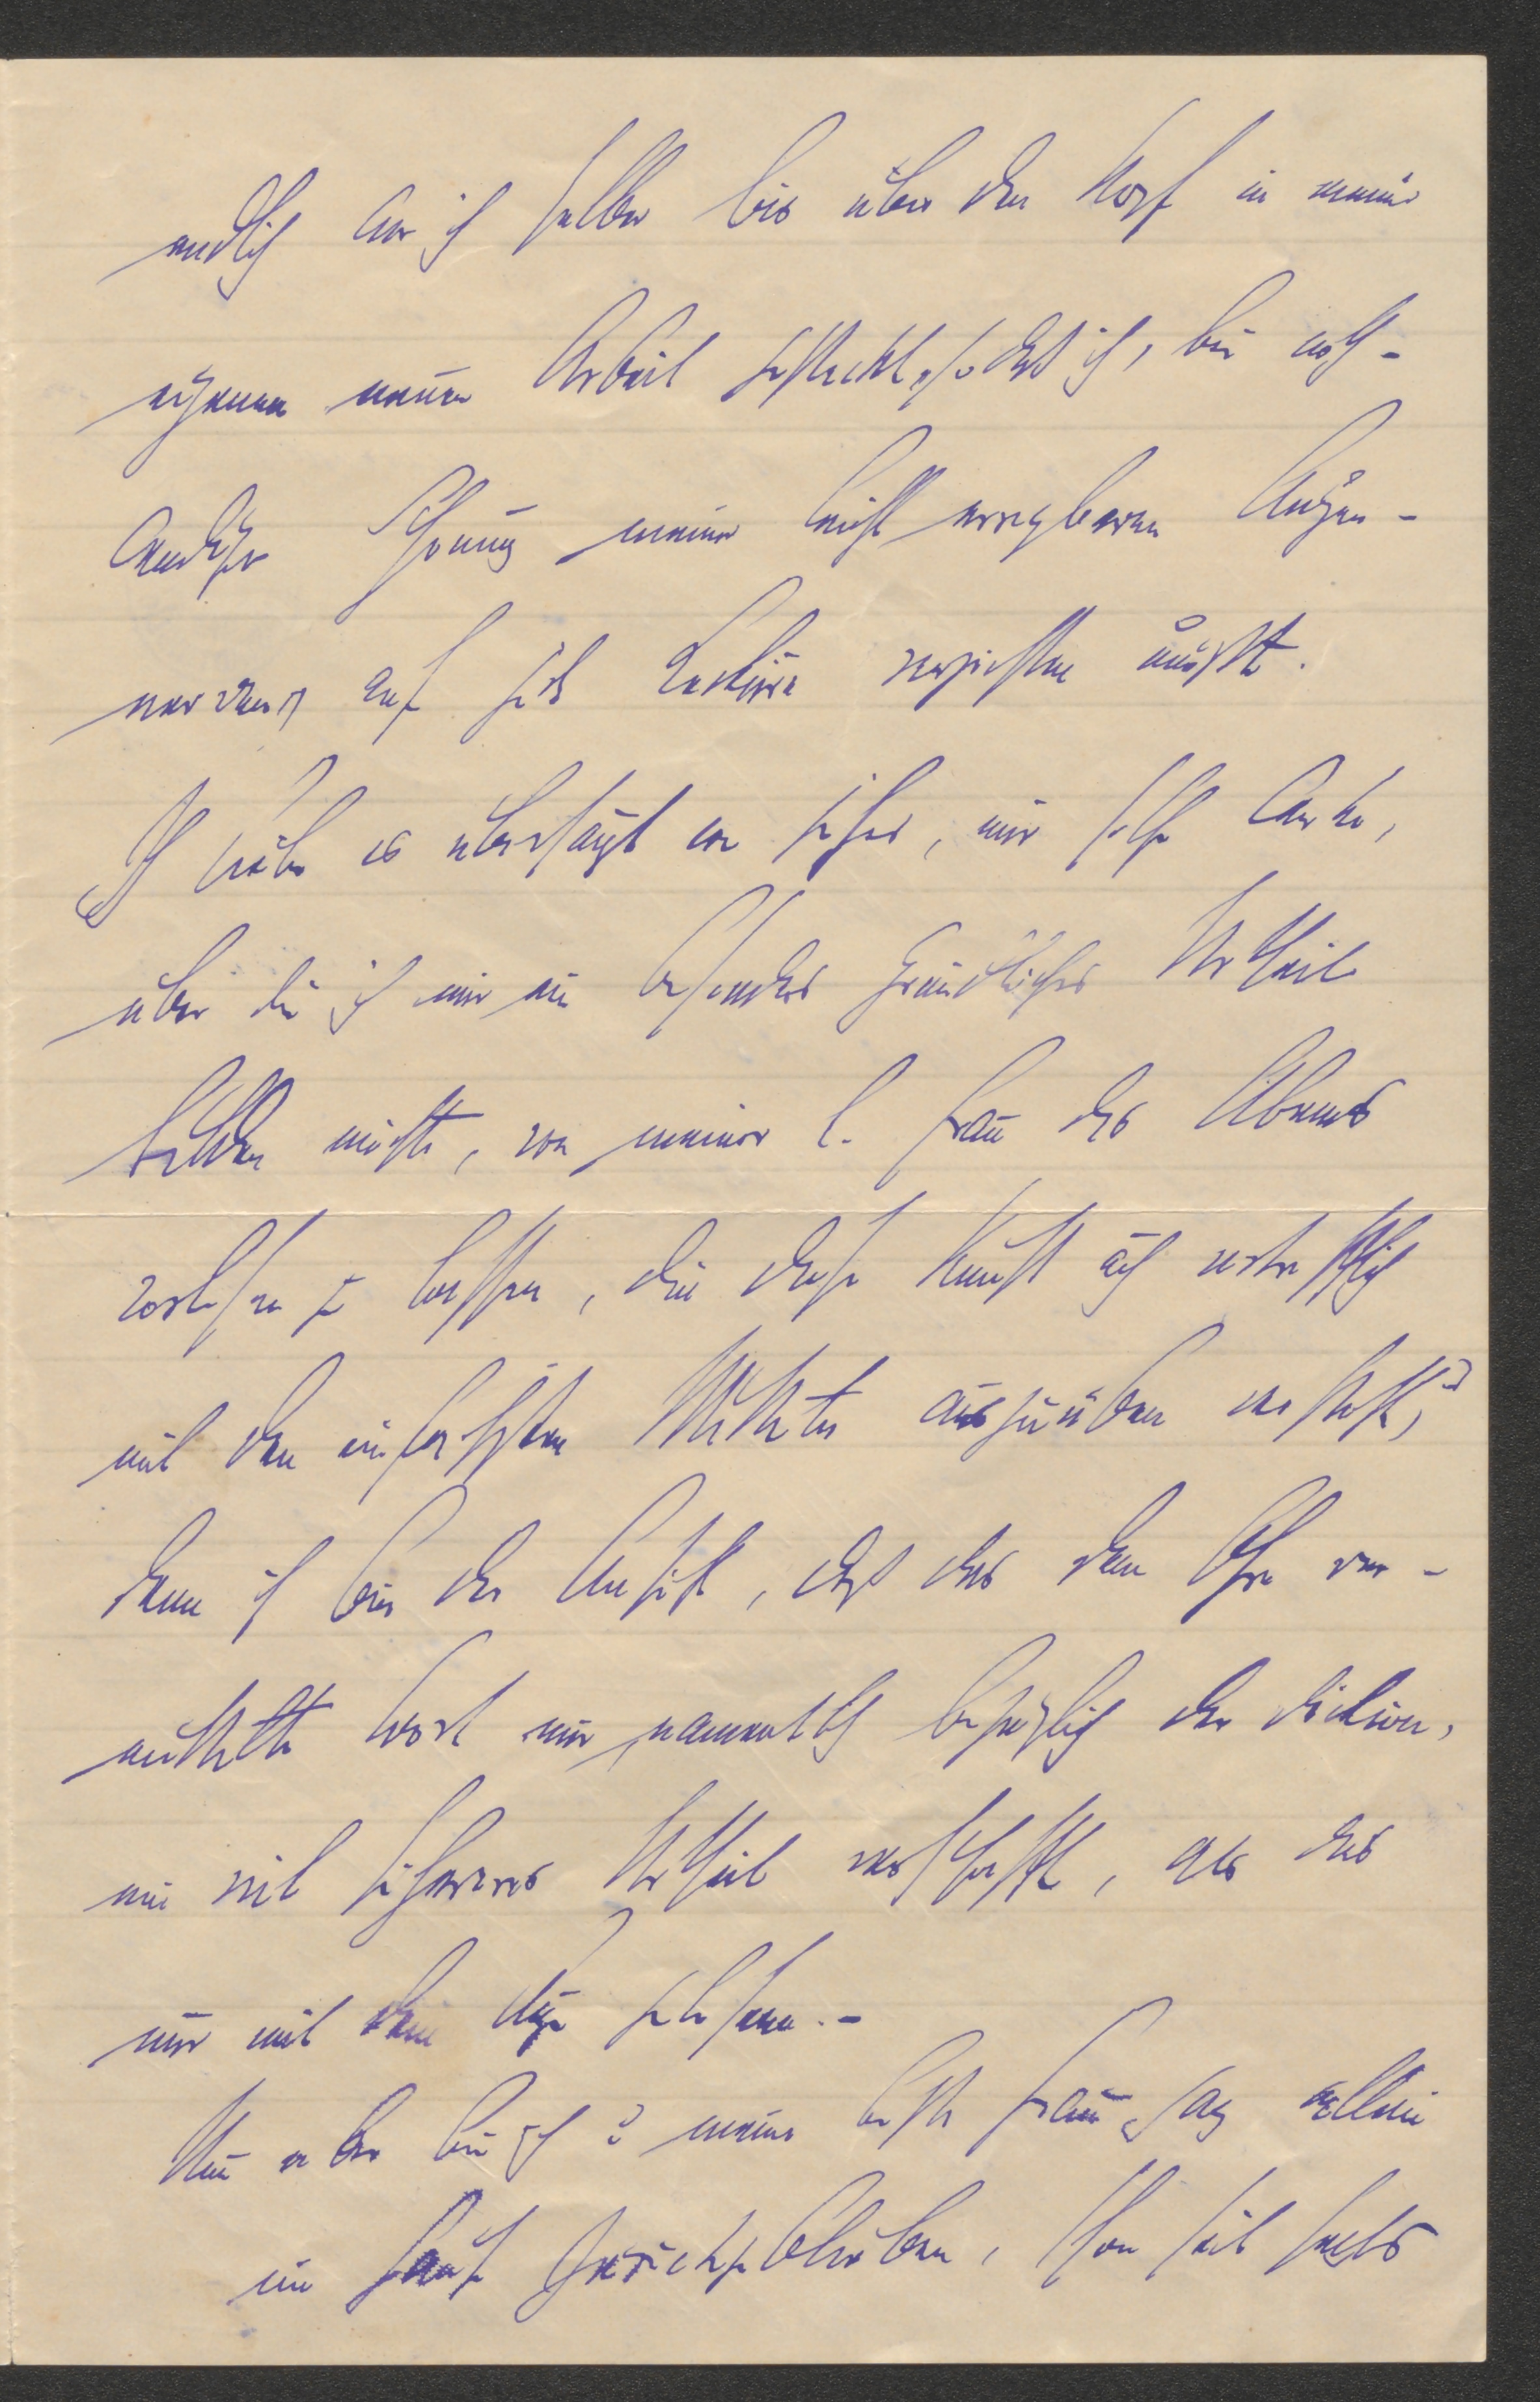 endlich war ich selber bis über den Kopf in meine
eigenen neuen Arbeit gesteckt, so daß ich, bei noth-
wendiger Schonung meiner leicht erregbaren Augen-
nerven, auf jede Lektüre verzichten mußte.
Ich habe es überhaupt von jeher, mir solche Werke,
über die ich mir ein besonders gründliches Urtheil
bilden möchte, von meiner l. Frau des Abends
vorlesen zu lassen, die diese Kunst auch vortrefflich
mit den einfachsten Mitteln auszuüben versteht,
denn ich bin der Ansicht, daß das dem Ohre ver-
mittelte Wort mir namentlich bezüglich der Diktion,
ein viel sichereres Urtheil verschafft, als das
nur mit dem Auge gelesene.-
Nun aber bin ich meine beste Frau allein
im zurückgeblieben, schon seit sechs